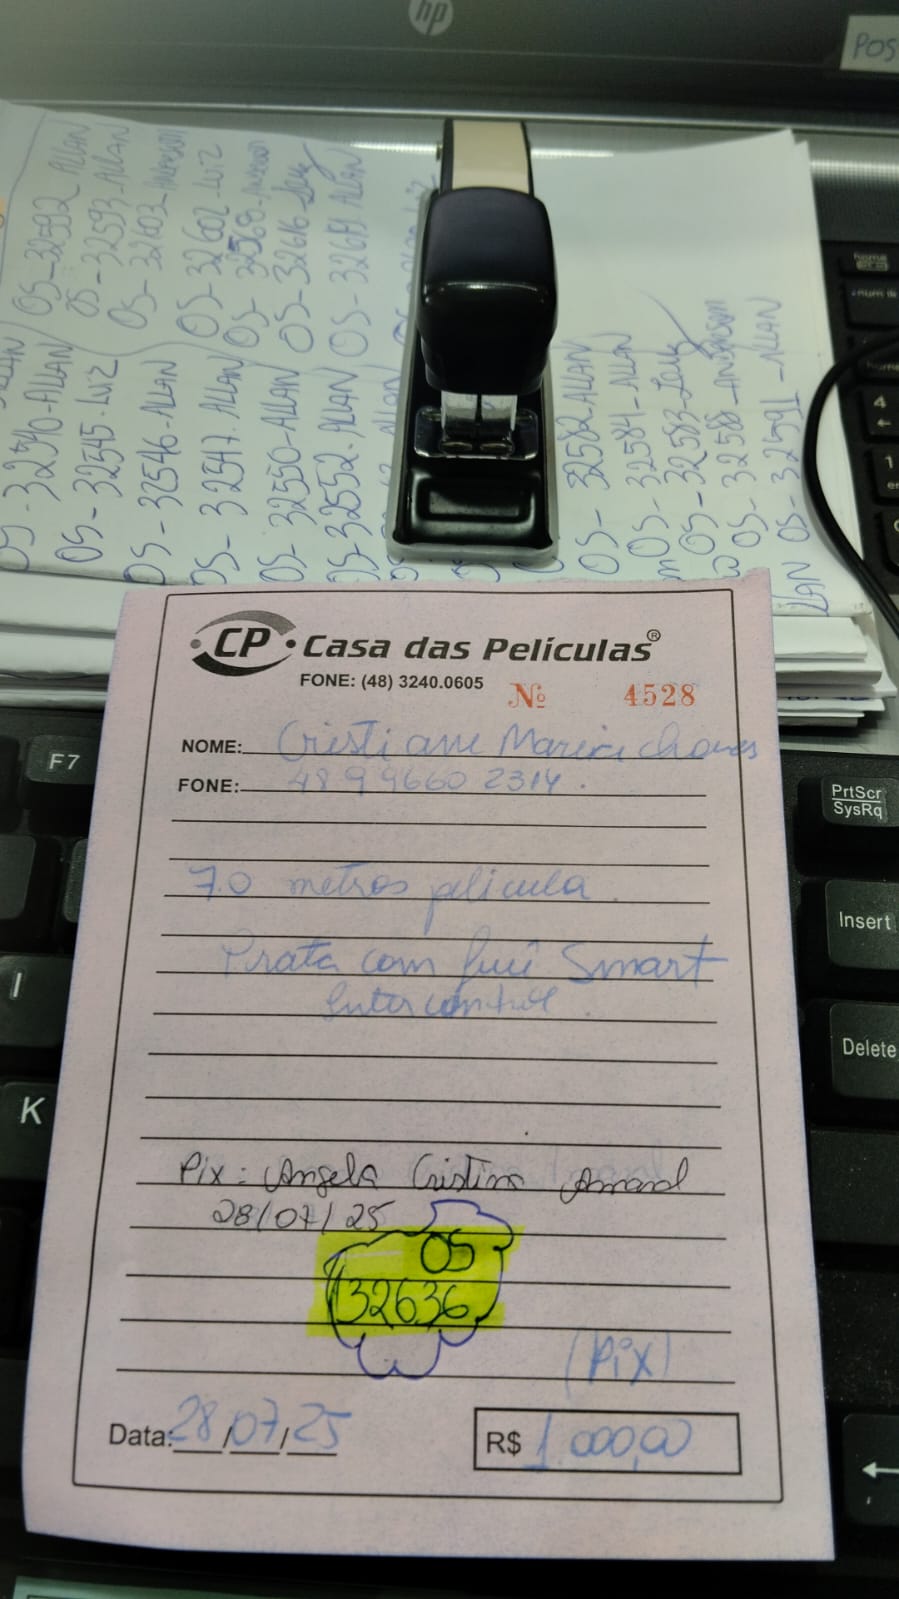 hp
POS
OS-32592 ALLAN
OS-32593-ALLAN
OS-32603
OS-32602-LUIZ
OS-32616-Luiz
OS-32619 ALLAN
OS-32540-ALLAN
OS-32545-LUIZ
OS-32546-ALLAN
OS-32547-ALLAN
OS-32550-ALLAN
OS-32552-ALLAN
OS-32582 ALLAN
OS-32584-ALLAN
OS-32583-Luiz
OS-32588-ANDERSON
OS-32591-ALLAN
CP Casa das Películas®
FONE: (48) 3240.0605
Nº 4528
NOME: Cristiane
FONE: 48 9 9660 2314
7.0 metros pelicula.
Prata com Smart
Pix: Angela Cristina
28/07/25
OS
32636
(Pix)
Data: 28/07/25
R$ 1.000,00
F7
I
K
PrtScr
SysRq
Insert
Delete
Home
num lk
4
←
1
←